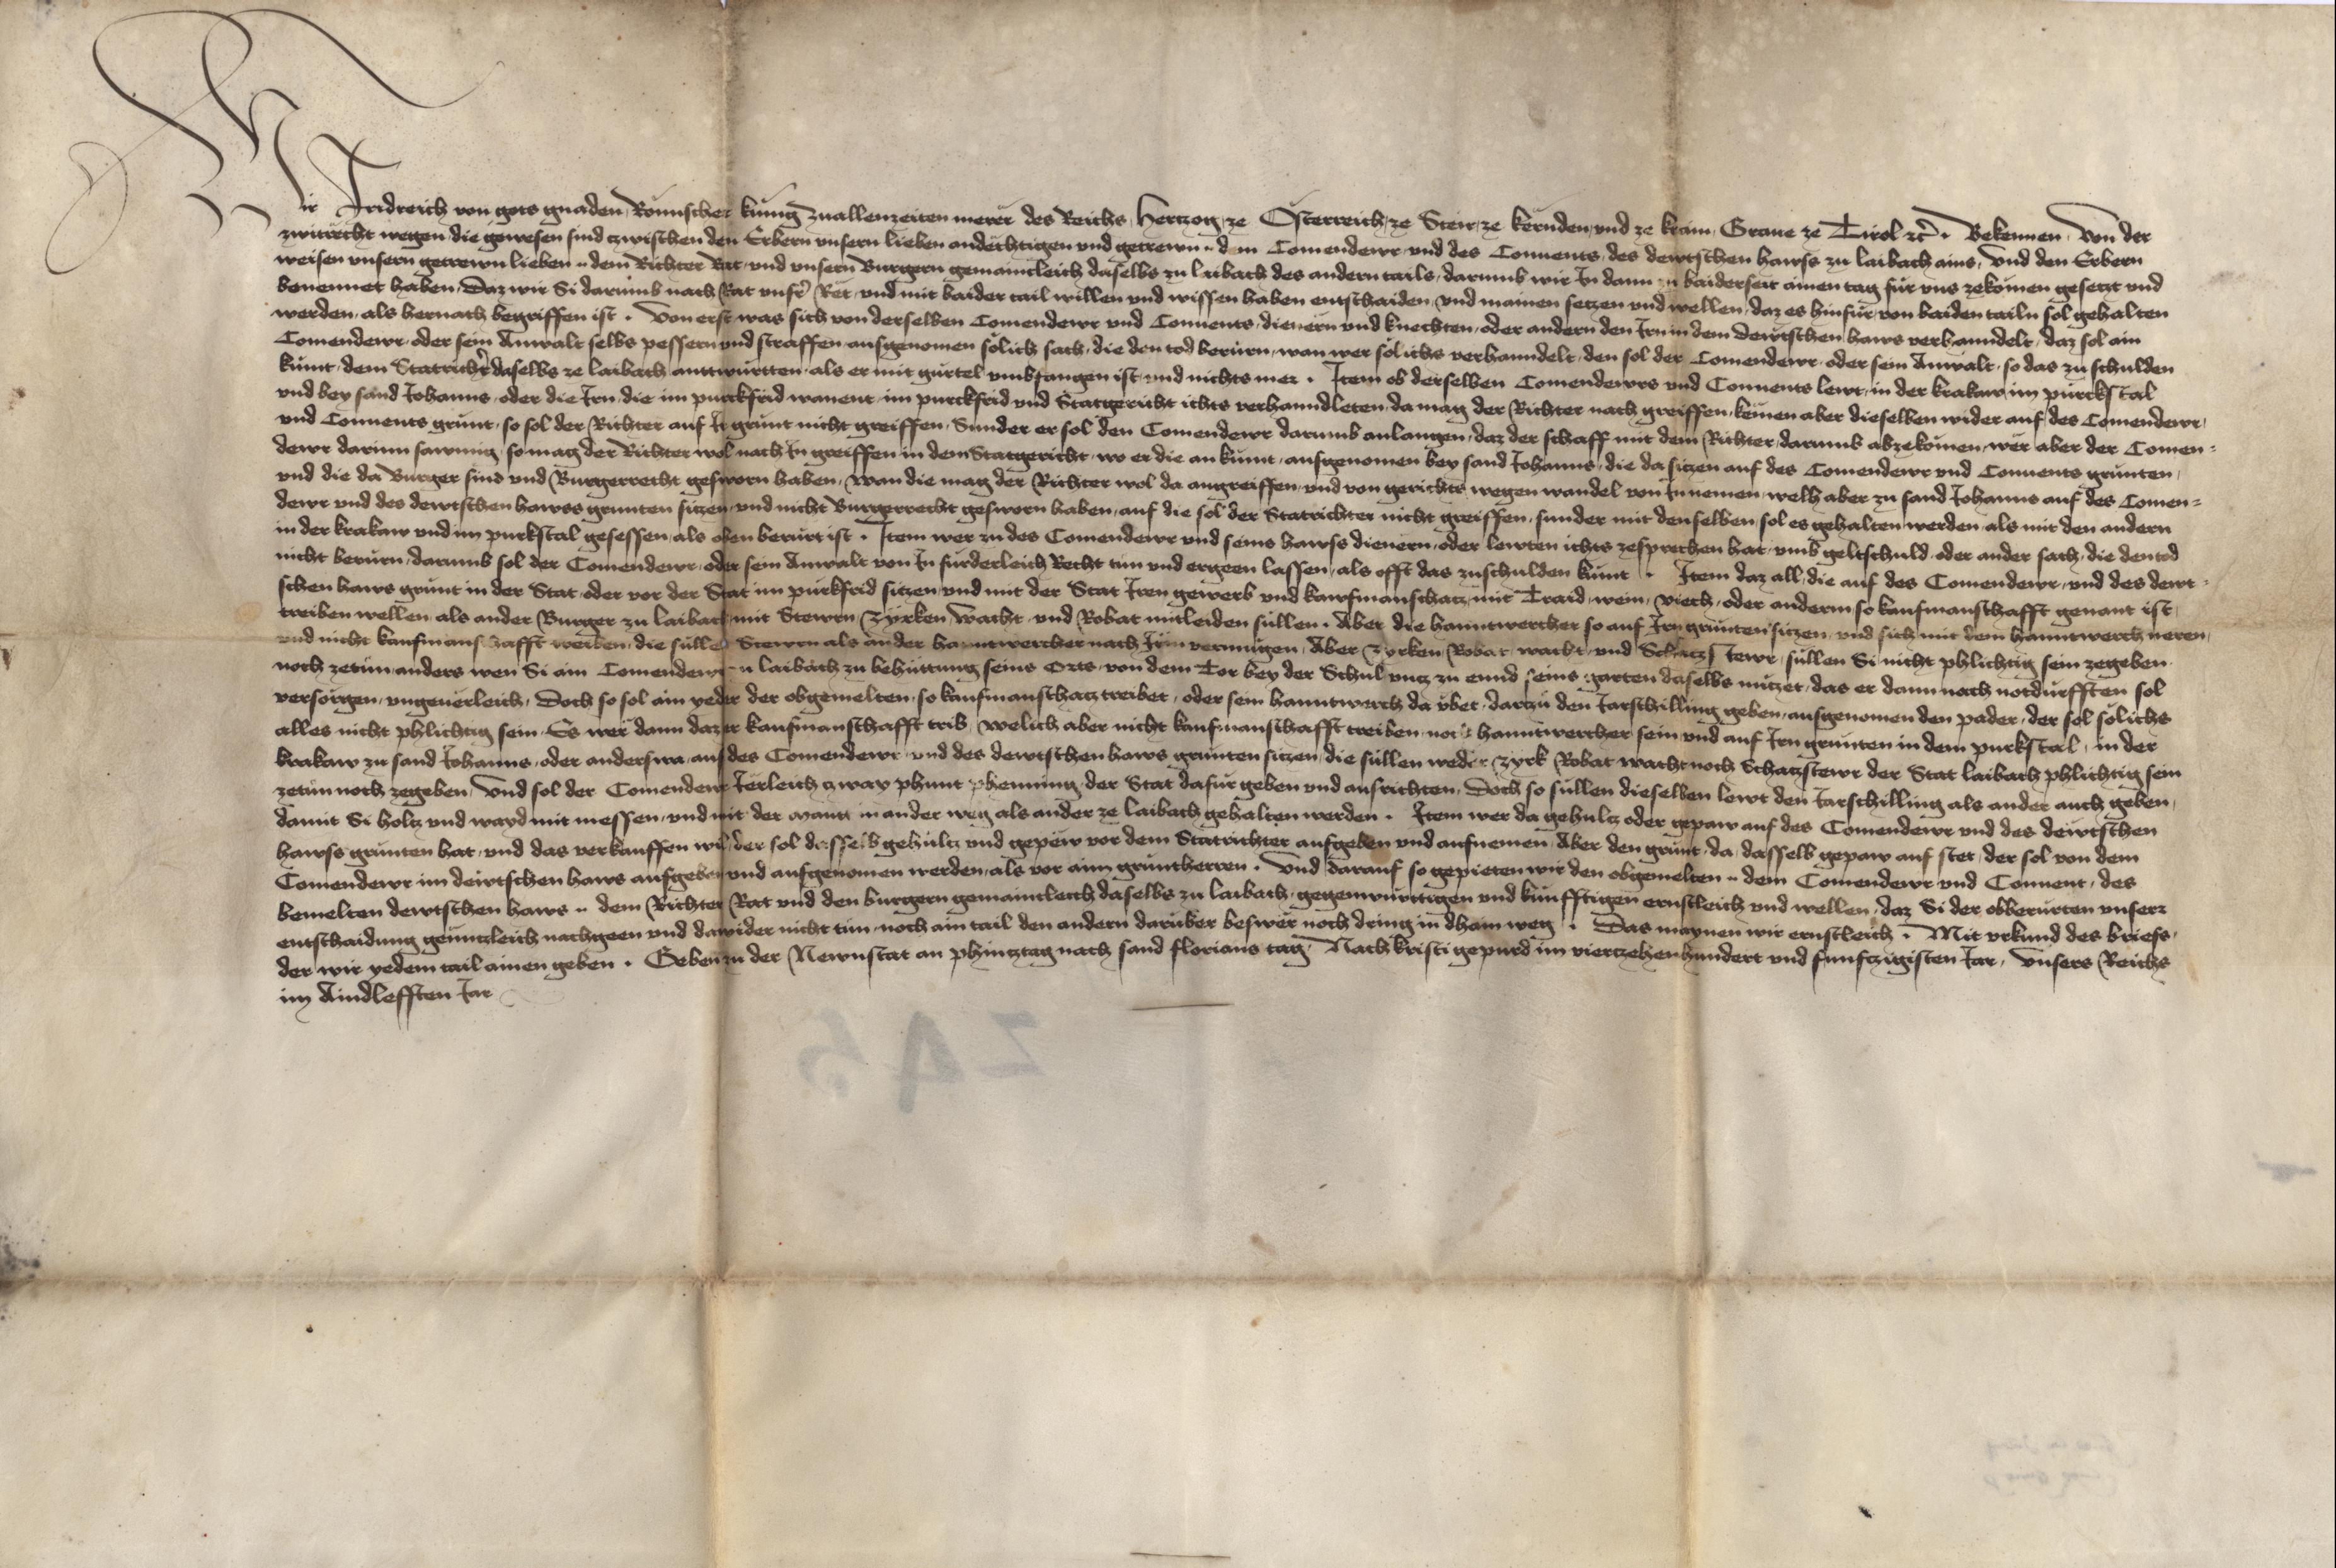 Wir Fridreich von gots gnaden Römischer kunig zuallenzeiten merer des Reichs Hertzog ze Österreich ze Steir ze kernden und ze krain Graue ze Tirol etc. Bekennen Von der
zwitrecht wegen die gewesen sind czwischen den Erbern unsern lieben andechtigen und getrewn .. dem Comendewr und des Conuents des dewtschen hawss zu laibach ains, und den Erbern
weisen unsern getrewn lieben .. dem Richter Rat und unsern Burgern gemaincleich daselbs zu laibach des andern tails, darumb wir In dann zu baiderseit ainen tag für uns zekomen gesetzt und
benennet haben, Daz wir Si darumb nach Rat unsrer Ret und mit baider tail willen und wissen haben entschaiden, und mainen setzen und wellen, daz es hinfür von baiden tailn sol gehalten
werden, als hernach begriffen ist. Von erst was sich von derselben Comendewr und Conuents dienern und knechten oder andern den Irn in dem Dewtschen haws verhanndelt, daz sol ain
Comendewr oder sein Anwalt selbs pessern und straffen ausgenomen solich sach, die den tod berürn, wan wer solichs verhanndelt, den sol der Comendewr oder sein Anwalt, so das zu schulden
kumt, dem Statrichter daselbs ze laibach anttwurtten, als er mit gürtel umbfangen ist und nichts mer. Item ob derselben Comendewrs und Conuents lewt, in der krakaw im purckstal
und bey sand Johanns, oder die Irn, die im purckfrid wanent im purckfrid und Statgericht ichts verhanndleten, da mag der Richter nach greiffen, kemen aber dieselben wider auf des Comendewr
und Conuents grunt, so sol der Richter auf Ir grunt nicht greiffen, Sunder er sol den Comendewr darumb anlangen, daz der schaff mit dem Richter darumb abzekomen, wer aber der Comen-
dewr darinn sawmig, so mag der Richter wol nach In greiffen in dem Statgericht, wo er die an kumt, ausgenomen bey sand Johanns, die da sitzen auf des Comendewr und Conuents grunten,
und die da Burger sind und Burgerrecht gesworn haben, Wan die mag der Richter wol da angreiffen, und von gerichts wegen wandel von In nemen, welh aber zu sand Johanns auf des Comen-
dewr und des dewtschen hawss grunten sitzen, und nicht Burgerrecht gesworn haben, auf die sol der Statrichter nicht greiffen, sunder mit denselben sol es gehalten werden, als mit den andern
in der krakaw und im purkstal gesessen, als oben berürt ist. Item wer zu des Comendewr und seins hawss dienern, oder lewten ichts zesprechen hat, umb geltschuld oder ander sach, die den tod
nicht berürn, darumb sol der Comendewr oder sein Anwalt von In fürderleich Recht tun und ergeen lassen, als offt das zuschulden kumt. Item daz all, die auf des Comendewr und des dewt-
schen haws grunt in der Stat oder vor der Stat im purkfrid sitzen, und mit der Stat Iren gewerb und kawfmanschatz mit Traid, wein, viech, oder anderm so kaufmanschafft genant ist,
treiben wellen, als ander Burger zu laibach mit Stewrn Zyrken Wacht und Robat mitleiden süllen. Aber die hanntwercher so auf Irn grunten sitzen, und sich mit dem hanntwerch neren,
und nicht kaufmanschafft treiben, die süllen Stewrn als ander hanntwercher nach Irm vermugen, Aber Zyrken Robat wacht und Schatzstewr, süllen Si nicht phlichtig sein zegeben
noch zetun, anders wen Si ain Comendewr zu laibach zu behüttung seins Orts von dem Tor bey der Schul uncz zu ennd seins garten daselbs nützet, das er dann nach notdurfften sol
versorgen, ungeuerleich, Doch so sol ain yeder der obgemelten, so kaufmanschatz treibet, oder sein hanntwerch da übet, dartzu den Jarschilling geben, ausgenomen den pader, der sol solichs
alles nicht phlichtig sein, Es wer dann daz er kaufmanschafft trib, welich aber nicht kaufmanschafft treiben noch hanntwercher sein und auf Irn grunten in dem purkstal, in der
krakaw zu sand Johanns, oder anderswa auf des Comendewr und des dewtschen haws grunten sitzen, die süllen weder Zyrk Robat wacht noch Schatzstewr der Stat laibach phlichtig sein
zetun noch zegeben, Und sol der Comendewr Jerleich zway phunt phenning der Stat dafür geben und ausrichten, Doch so süllen dieselben lewt den Jarschilling als ander auch geben,
damit Si holtz und wayd mit niessen, und mit der mautt in ander weg als ander ze laibach gehalten werden. Item wer da gehultz oder gepaw auf des Comendewr und des dewtschen
hawss grunten hat, und das verkauffen wil, der sol dasselb gehültz und gepew vor dem Statrichter aufgeben und aufnemen, Aber den grunt, da dasselb gepaw auf stet, der sol von dem
Comendewr im dewtschen haws aufgeben und aufgenomen werden, als vor aim gruntherren. Und darauf so gepieten wir den obgemelten .. dem Comendewr und Conuent, des
bemelten dewtschen haws .. dem Richter Rat und den burgern gemaincleich daselbs zu laibach, gegenwurttigen und kunfftigen ernstleich und wellen, daz Si der obberürten unserr
entschaidung genntzleich nachgeen und dawider nicht tun, noch ain tail den andern darüber beswer noch dring in dhain weg. Das maynen wir ernstleich. Mit urkund des briefs,
der wir yedem tail ainen geben. Geben zu der Newnstat an phintztag nach sand florians tag Nach kristi gepurd im viertzehenhundert und funftzigisten Jar, Unsers Reichs
im Aindlefften Jar